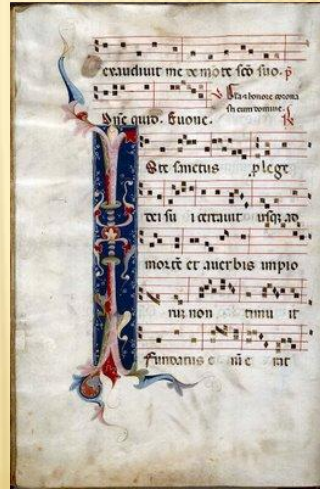 exaudiuit me de mo te scō suo. p̄
Gl'a et honore corona
sti eum domine.
Dn̄e quid. Euouae.
Iste sanctus p lege
dei su i certauit usq; ad
mortē et a uerbis impio
rum non timu it
fundatus e ni e rat